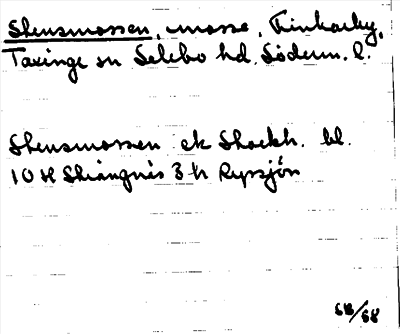 Stensmossen, mosse, Finkarby,
Taxinge sn Selebo hd. Söderm. l.
Stensmossen ek Stockh. bl.
10 H Strängnäs 3 h Ryssjön
SB/68